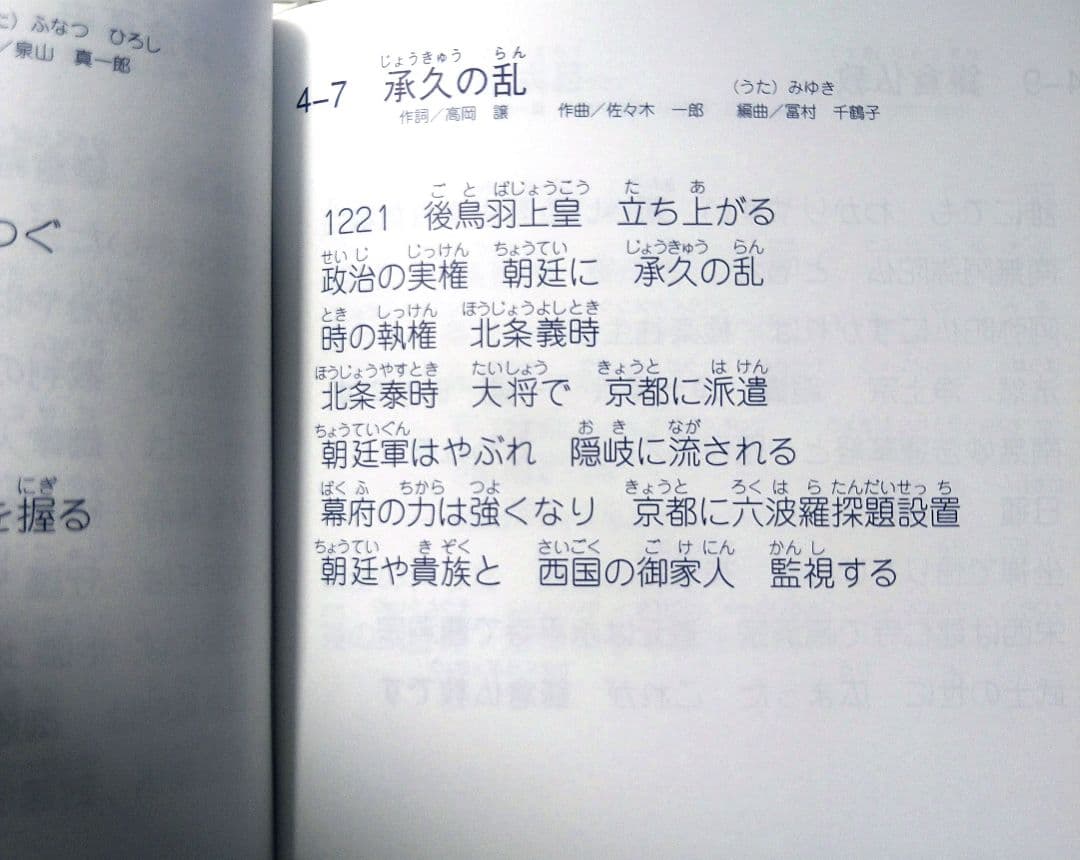 た）ふなつ　ひろし
／泉山　真一郎
つぐ
にぎ
を握る
じょうきゅう　らん
4−7　承久の乱
（うた）みゆき
作詞／高岡　譲　作曲／佐々木　一郎　編曲／冨村　千鶴子
ごとばじょうこう　た　あ
1221　後鳥羽上皇　立ち上がる
せいじ　じっけん　ちょうてい　じょうきゅう　らん
政治の実権　朝廷に　承久の乱
とき　しっけん　ほうじょうよしとき
時の執権　北条義時
ほうじょうやすとき　たいしょう　きょうと　はけん
北条泰時　大将で　京都に派遣
ちょうていぐん　おき　なが
朝廷軍はやぶれ　隠岐に流される
ばくふ　ちから　つよ　きょうと　ろくはらたんだいせっち
幕府の力は強くなり　京都に六波羅探題設置
ちょうてい　きぞく　さいごく　ごけにん　かんし
朝廷や貴族と　西国の御家人　監視する